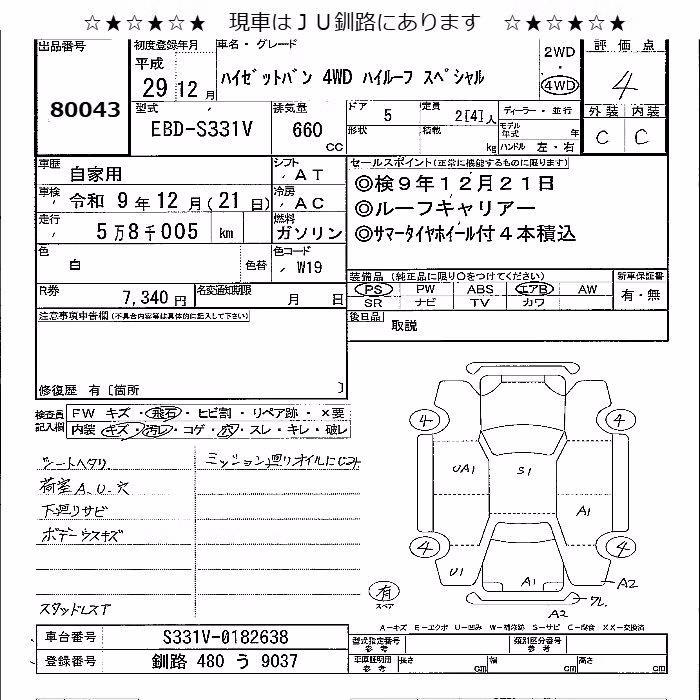 ☆★☆★☆★ 現車はＪＵ釧路にあります ☆★☆★☆★
出品番号
80043
初度登録年月
平成
29 12 月
車名・グレード
ハイゼットバン 4WD ハイルーフ スペシャル
2WD
・
4WD
評価点
4
外装 内装
C C
型式
EBD-S331V
排気量
660
CC
ドア
5
定員
2[4]人
形状
積載
kg
ディーラー・並行
モデル年式 年
ハンドル 左・右
車歴
自家用
シフト
AT
車検
令和 9年12月(21日)
冷房
AC
走行
5万8千005 km
燃料
ガソリン
色
白
色替
色コード
W19
R券
7,340円
名変通知期限
月 日
セールスポイント(正常に機能するものに限ります)
◎検９年１２月２１日
◎ルーフキャリアー
◎サマータイヤホイール付４本積込
装備品 (純正品に限り○をつけてください)
PS PW ABS エアB AW
SR ナビ TV カワ
新車保証書
有・無
後日品
取説
注意事項申告欄(不具合内容等は具体的に記入して下さい)
修復歴 有〔箇所 〕
検査員記入欄
FW キズ・飛石・ヒビ割・リペア跡・×要
内装 キズ・汚レ・コゲ・穴・スレ・キレ・破レ
シートヘタリ
ミッション廻りオイルにじみ
荷室A.U.穴
下廻りサビ
ボデーウスキズ
スタッドレスT
4 4
UA1 S1
A1
4 4
U1 A1 A2
有
スペア
ワレ
A2
A－キズ E－エクボ U－凹み W－補修跡 S－サビ C－腐食 XX－交換済
車台番号
S331V-0182638
登録番号
釧路 480 う 9037
型式指定番号
参考
類別区分番号
参考
車庫証明用
参考
長さ cm
幅 cm
高さ cm